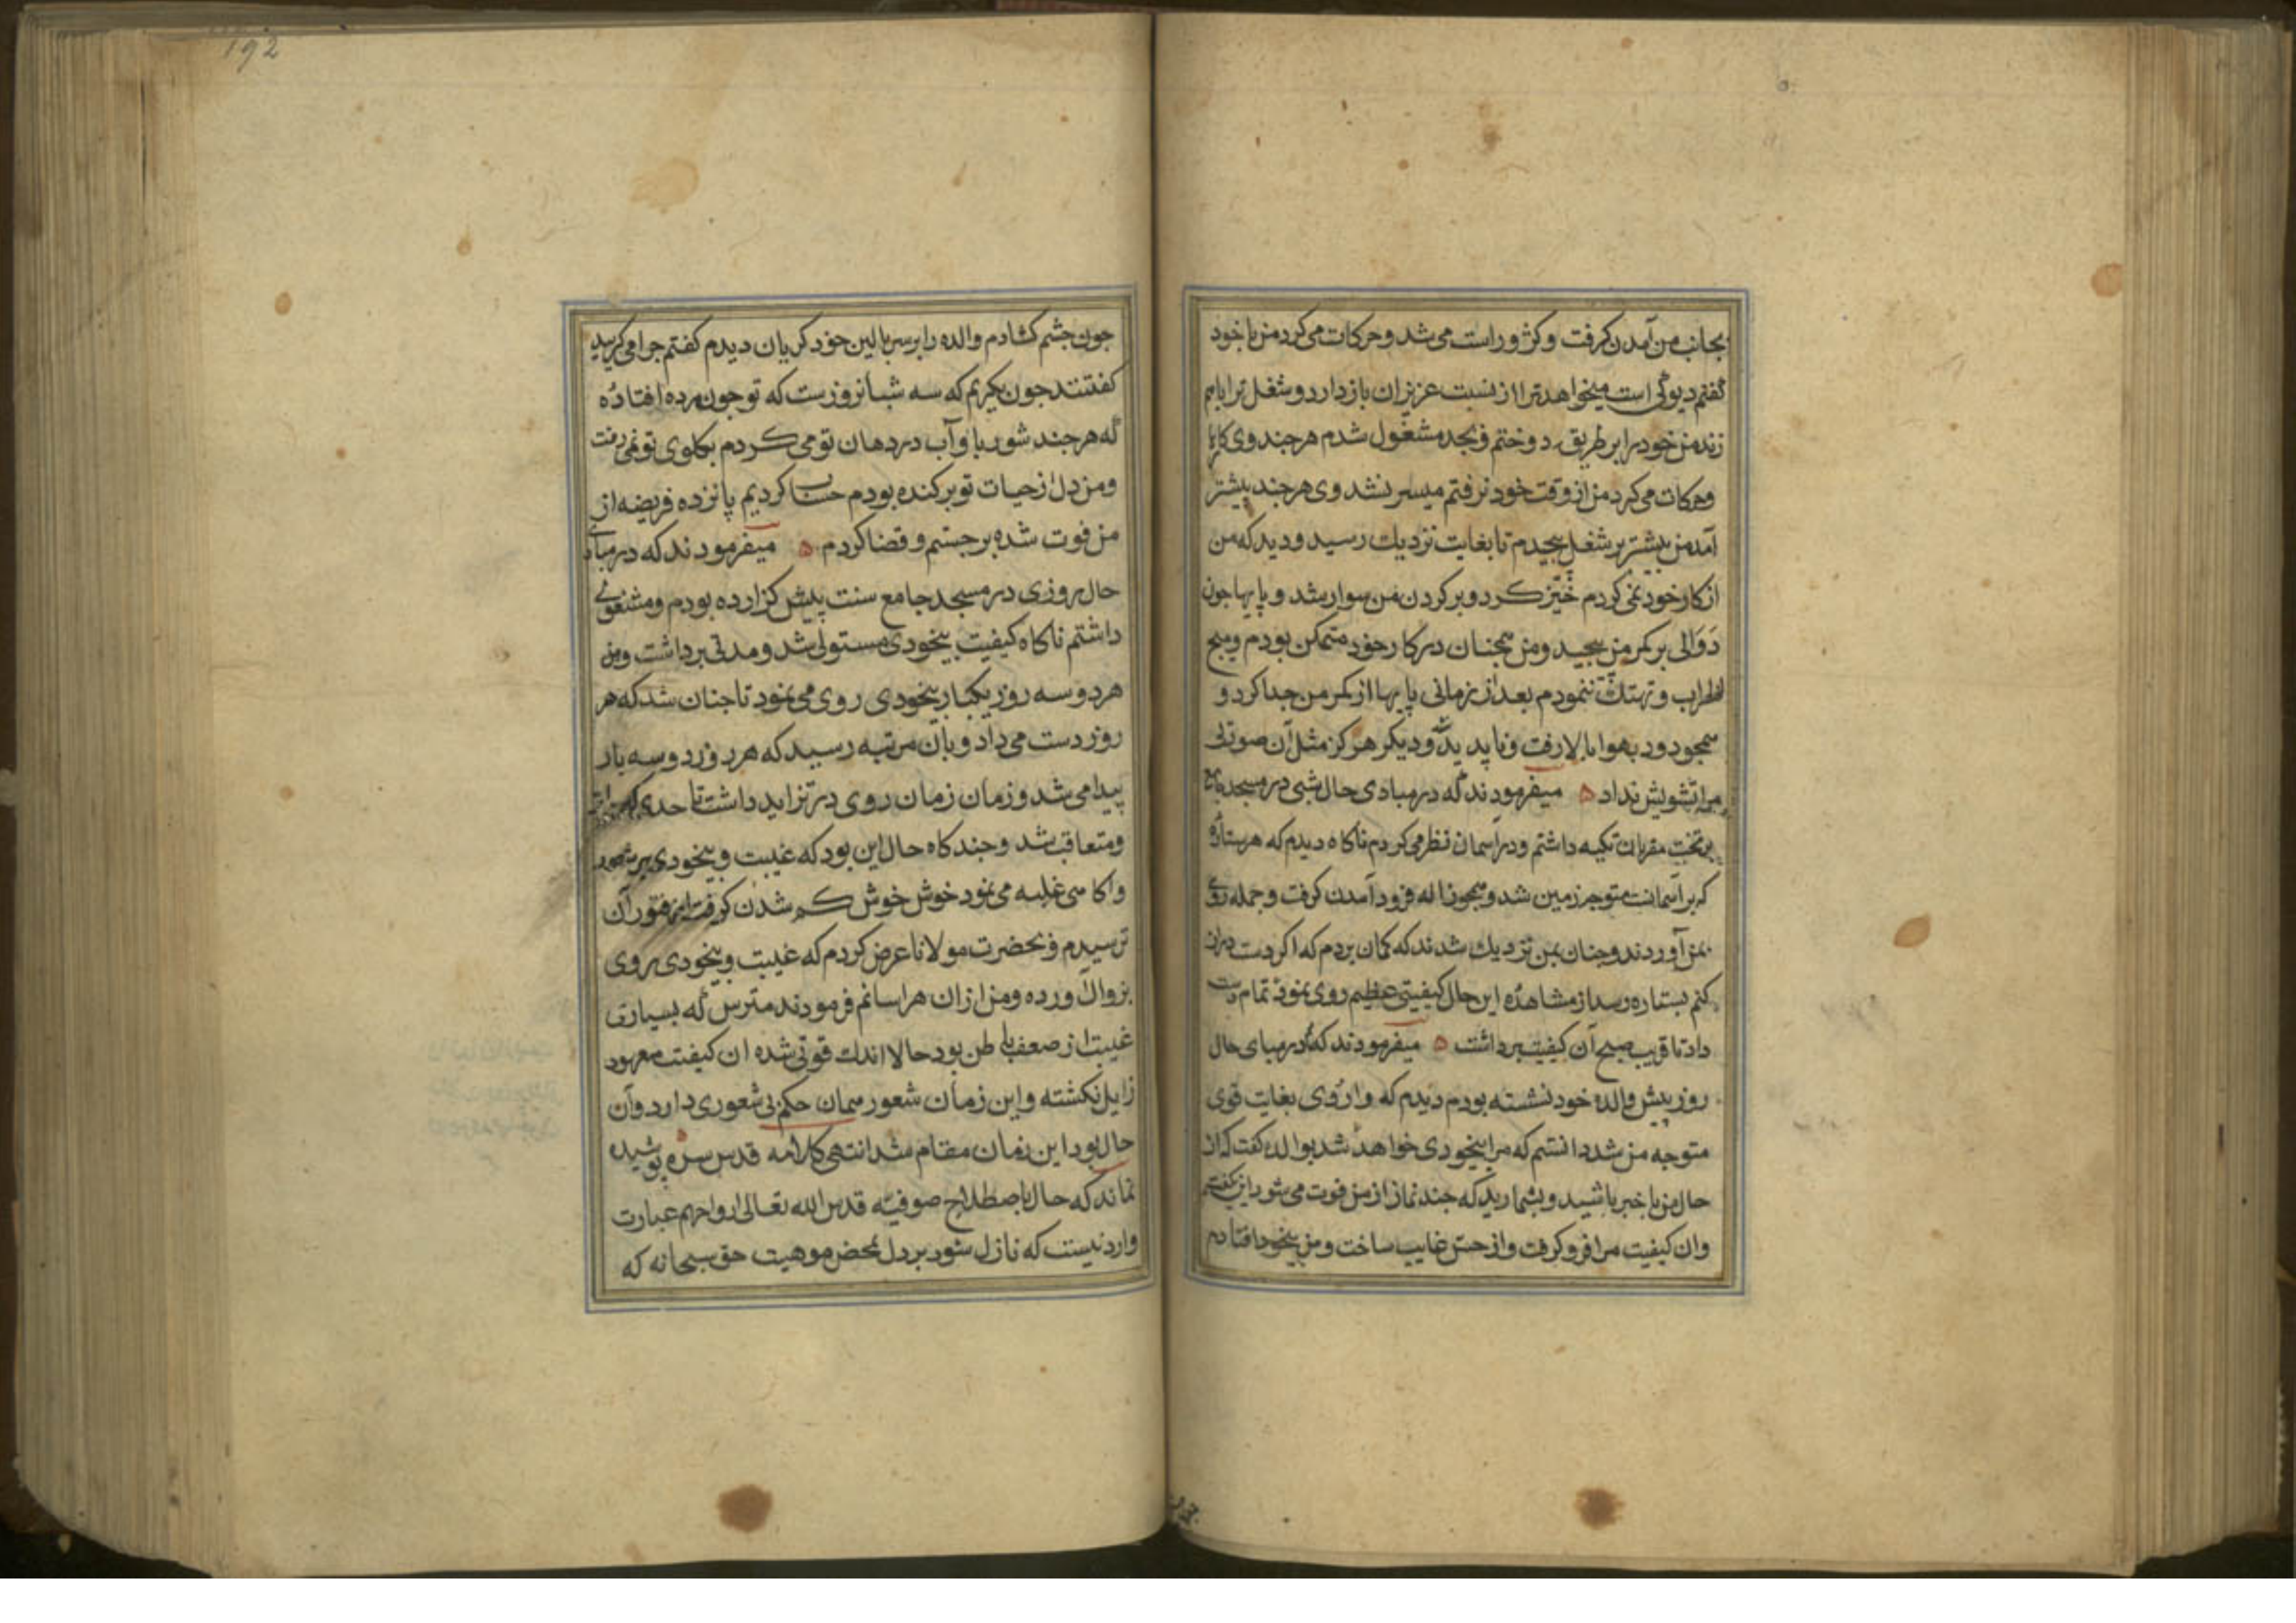 بجانب من آمدن کرفت و کژ و راست می شد و حرکات می کرد من با خود
گفتم دیوکی است میخواهد ترا از نسبت عزیزان باز دارد و شغل ترا باهم
زند من خود را بر طریق دوختم و بجد مشغول شدم هرجند وی کارها
وحرکات می کرد من از وقت خود نرفتم میسر نشد وی هرجند بیشتر
آمد من بیشتر بر شغل پیجیدم تا بغایت نزدیك رسید و دید که من
از کار خود نمی کردم خیز کرد و بر کردن من سوار شد و پایها جون
دوالی بر کمر من پیجید و من همجنان در کار خود متمکن بودم و هیج
اضطراب و تهتك ننمودم بعد از زمانی پایها از کمر من جدا کرد و
همجو دود بهوا بالا رفت و ناپدید شد و دیکر هرکز مثل آن صورتی
مرا تشویش نداد ه میفرمودند که در مبادی حال شبی در مسجد جامع
بر تخت مقریان تکیه داشتم و در آسمان نظر می کردم ناکاه دیدم که هر ستاره
که بر آسمانست متوجه زمین شد و همجو ژاله فرود آمدن کرفت و جمله روی
بمن آوردند و جنان بمن نزدیك شدند که کمان بردم که اکر دست دراز
کنم بستاره رسد از مشاهده این حال کیفیتی عظیم روی نمود تمام دست
داد تا قریب صبح آن کیفیت برداشت ه میفرمودند که در مبای حال
روز پیش والده خود نشسته بودم دیدم که واردی بغایت قوی
متوجه من شد دانستم که مرا بیخودی خواهد شد بوالده کفت که از
حال من با خبر باشید و بشمارید که جند نماز از من فوت می شود این کفتم
وان کیفیت مرا فرو کرفت و از حس غایب ساخت و من بیخود افتادم
جون
192
جون جشم کشادم والده را بر سر بالین خود کریان دیدم کفتم جرا می کریید
کفتند جون نکریم که سه شبانروزست که تو جون مرده افتاده
که هر جند شوربا و آب در دهان تو می کردم بکلوی تو نمی رفت
ومن دل از حیات تو بر کنده بودم حساب کردیم پانزده فریضه از
من فوت شده برجستم و قضا کردم ه میفرمودند که در مبادی
حال روزی در مسجد جامع سنت پیش کزارده بودم و مشغولی
داشتم ناکاه کیفیت بیخودی مستولی شد و مدتی برداشت و من
هر دو سه روز یکبار بیخودی روی می نمود تا جنان شد که هر
روز دست می داد و بان مرتبه رسید که هر روز دو سه بار
پیدا می شد و زمان زمان روی در تزاید داشت تا حدی که
ومتعاقب شد و جند کاه حال این بود که غیبت و بیخودی بر شعور
واکاهی غلبه می نمود خوش خوش کم شدن کرفت از فتور آن
ترسیدم و بحضرت مولانا عرض کردم که غیبت و بیخودی روی
بزوال آورده و من از ان هراسانم فرمودند مترس که بسیاری
غیبت از ضعف باطن بود حالا اندك قوتی شده ان کیفیت معهود
زایل نکشته و این زمان شعور همان حکم بی شعوری دارد و آن
حال بود این زمان مقام شد انتهی کلامه قدس سره پوشیده
نماند که حال باصطلاح صوفیه قدس الله تعالی ارواحهم عبارت
وارد نیست که نازل شود بر دل بمحض موهبت حق سبحانه که